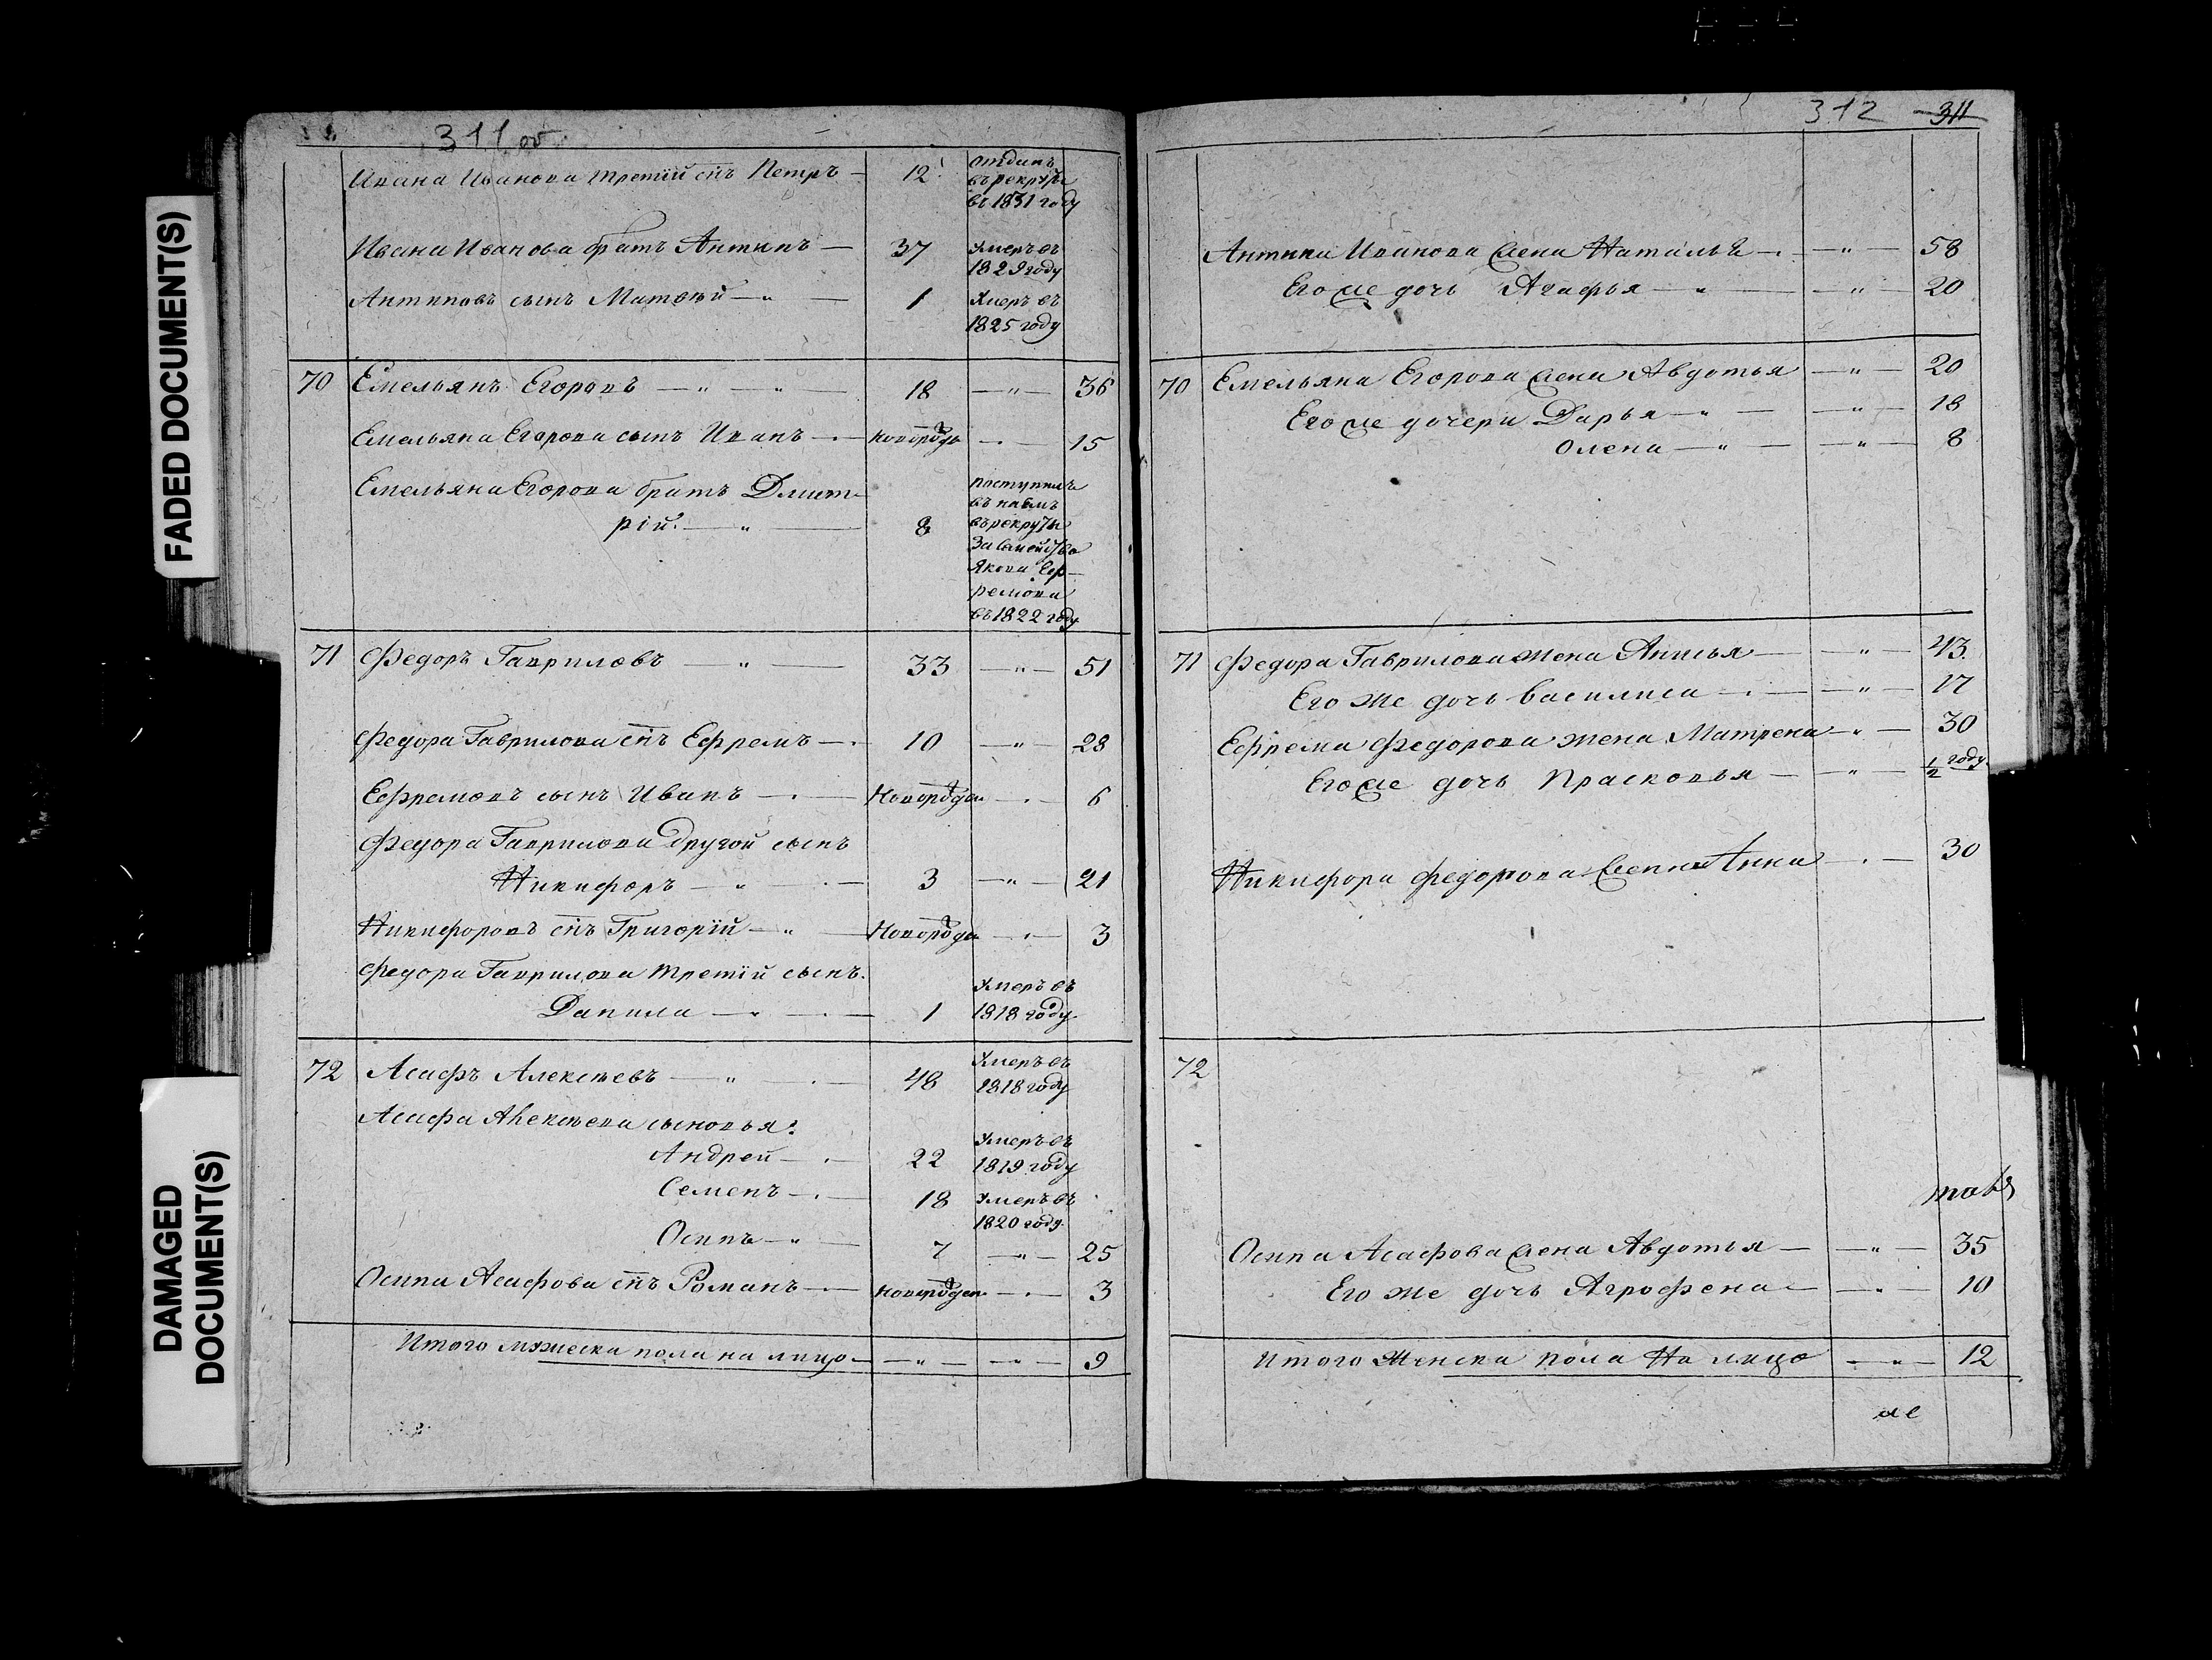 FADED DOCUMENT(S)
DAMAGED DOCUMENT(S)
311 об.
Ивана Иванова третiй снъ Петръ — 12 отданъ
въ рекруты
въ 1831 году
Ивана Иванова братъ Антипъ — 37 умеръ въ
1829 году
Антиповъ сынъ Матвѣй — " — 1 умеръ въ
1825 году
70 Емельянъ Егоровъ — " — " — 18 — " — 36
Емельяна Егорова сынъ Иванъ — новорожд — " — 15
Емельяна Егорова братъ Дмит-
рiй. — " — 8 поступилъ
въ наемъ
въ рекруты
за семейство
Якова Еф-
ремова
въ 1822 году
71 Федоръ Гавриловъ — " — 33 — " — 51
Федора Гаврилова снъ Ефремъ — 10 — " — 28
Ефремовъ сынъ Иванъ — новорожден — " — 6
Федора Гаврилова другой сынъ
Никифоръ — " — 3 — " — 21
Никифоровъ снъ Григорiй — " — новорожден — " — 3
Федора Гаврилова третiй сынъ.
Данила — " — 1 умеръ въ
1818 году
72 Асафъ Алексѣевъ — " — 48 умеръ въ
1818 году
Асафа Алексѣева сыновья:
Андрей — 22 умеръ въ
1819 году
Семенъ — 18 умеръ въ
1820 году
Осипъ — " — 7 — " — 25
Осипа Асафова снъ Романъ — новорожден — " — 3
Итого мужеска пола на лицо — " — " — 9
312 311
Антипа Иванова жена Наталья — " — 58
Его же дочь Агафья — " — " — 20
70 Емельяна Егорова жена Авдотья — " — 20
Его же дочери Дарья — " — " — 18
Олена — " — " — 8
71 Федора Гаврилова жена Анисья — " — 43
Его же дочь Василиса — " — 17
Ефрема Федорова жена Матрена — " — 30
Его же дочь Прасковья — " — 1/2 году
Никифора Федорова жена Анна — 30
72
Осипа Асафова жена Авдотья — " — 35
Его же дочь Агрофена — " — 10
Итого женска пола на лицо — " — 12